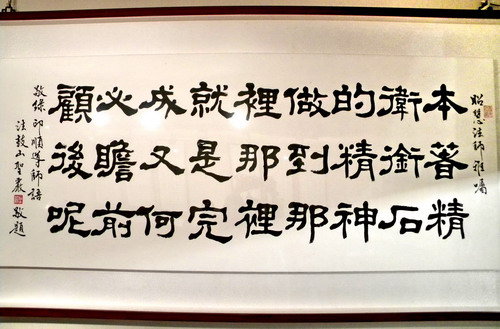 昭慧法師雅囑
本著精
衛銜石
的精神
做到那
裡那裡
就是完
成又何
必瞻前
顧後呢
敬錄印順導師語
法鼓山聖嚴敬題